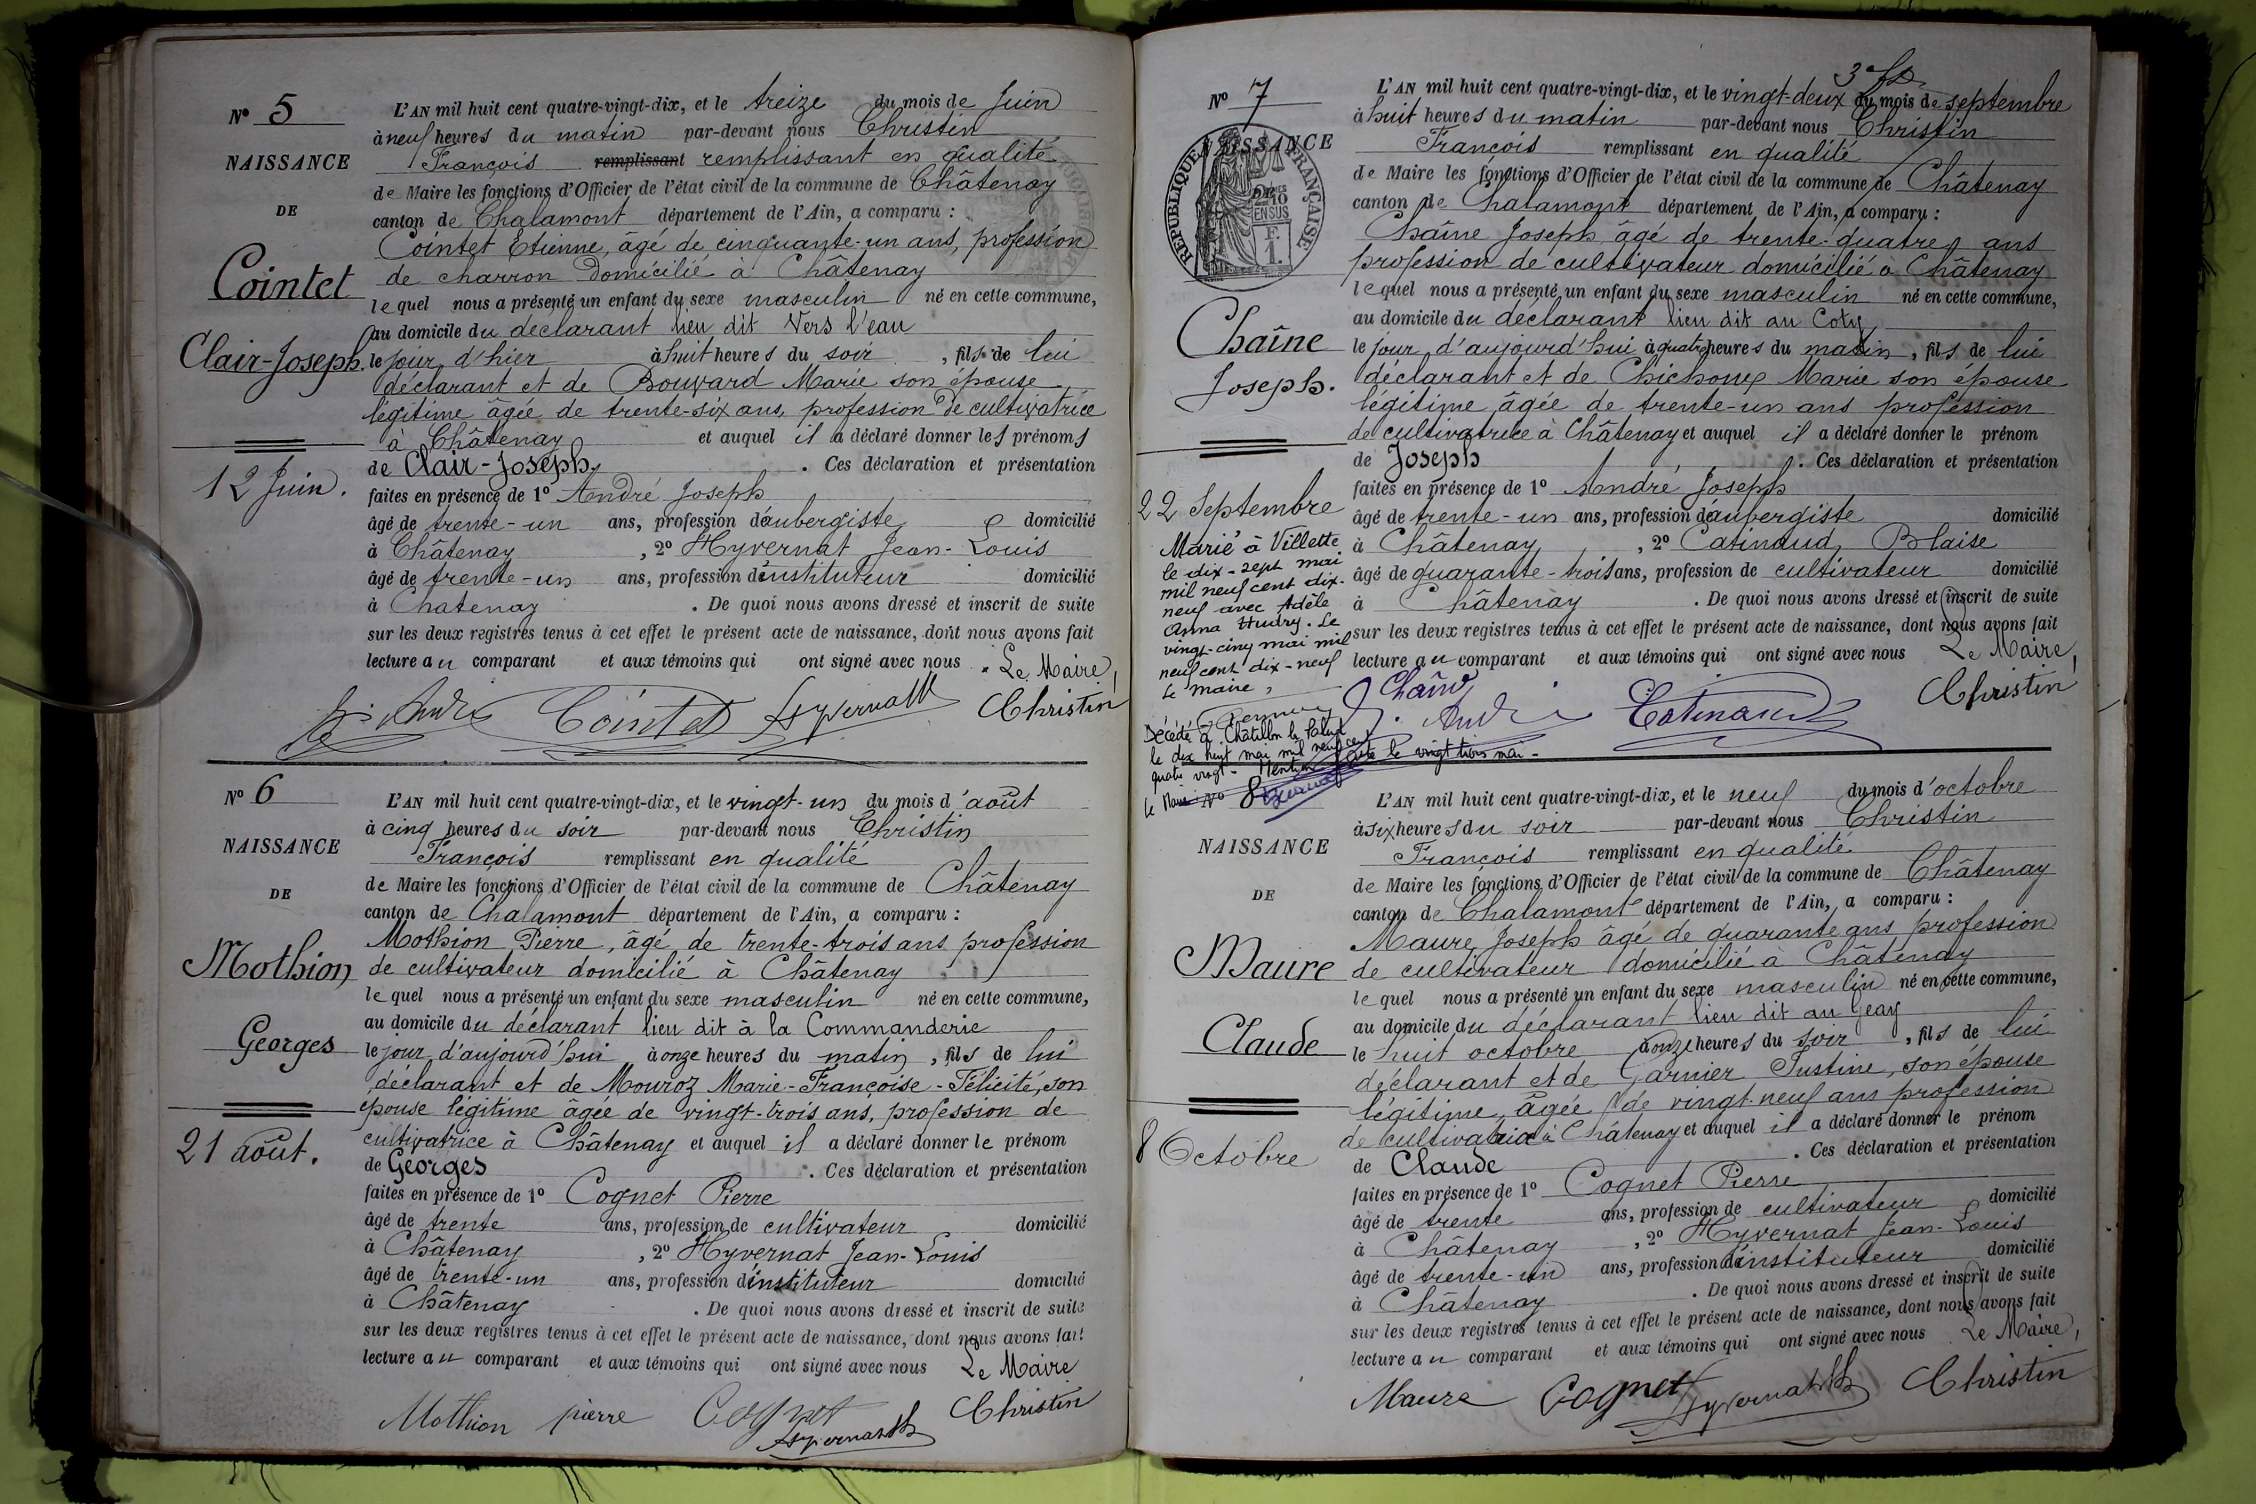 N° 5
NAISSANCE
DE
Cointet
Clair-Joseph.
12 Juin.
L'AN mil huit cent quatre-vingt-dix, et le treize du mois de Juin
à neuf heures du matin par-devant nous Christin
François remplissant remplissant en qualité
de Maire les fonctions d'Officier de l'état civil de la commune de Châtenay
canton de Chalamont département de l'Ain, a comparu :
Cointet Etienne, âgé de cinquante-un ans, profession
de charron domicilié à Châtenay
lequel nous a présenté un enfant du sexe masculin né en cette commune,
au domicile du déclarant lieu dit Vers l'eau
le jour d'hier à huit heures du soir, fils de lui
déclarant et de Bouvard Marie son épouse
légitime âgée de trente-six ans, profession de cultivatrice
à Châtenay et auquel il a déclaré donner les prénoms
de Clair-Joseph. Ces déclaration et présentation
faites en présence de 1° André Joseph
âgé de trente-un ans, profession d'aubergiste domicilié
à Châtenay, 2° Hyvernat Jean-Louis
âgé de trente-un ans, profession d'instituteur domicilié
à Chatenay. De quoi nous avons dressé et inscrit de suite
sur les deux registres tenus à cet effet le présent acte de naissance, dont nous avons fait
lecture au comparant et aux témoins qui ont signé avec nous. Le Maire,
J. André Cointet Hyvernat Christin
N° 6
NAISSANCE
DE
Mothion
Georges
21 août.
L'AN mil huit cent quatre-vingt-dix, et le vingt-un du mois d'août
à cinq heures du soir par-devant nous Christin
François remplissant en qualité
de Maire les fonctions d'Officier de l'état civil de la commune de Châtenay
canton de Chalamont département de l'Ain, a comparu :
Mothion Pierre, âgé de trente-trois ans profession
de cultivateur domicilié à Châtenay
lequel nous a présenté un enfant du sexe masculin né en cette commune,
au domicile du déclarant lieu dit à la Commanderie
le jour d'aujourd'hui à onze heures du matin, fils de lui
déclarant et de Mouroz Marie-Françoise-Félicité, son
épouse légitime âgée de vingt-trois ans, profession de
cultivatrice à Châtenay et auquel il a déclaré donner le prénom
de Georges. Ces déclaration et présentation
faites en présence de 1° Cognet Pierre
âgé de trente ans, profession de cultivateur domicilié
à Châtenay, 2° Hyvernat Jean-Louis
âgé de trente-un ans, profession d'instituteur domicilié
à Châtenay. De quoi nous avons dressé et inscrit de suite
sur les deux registres tenus à cet effet le présent acte de naissance, dont nous avons fait
lecture au comparant et aux témoins qui ont signé avec nous Le Maire
Mothion pierre Cognet Hyvernat Christin
3
N° 7
NAISSANCE
RÉPUBLIQUE FRANÇAISE
2/10
EN SUS
F.
1.
Chaîne
Joseph.
22 Septembre
Marié à Villette
le dix-sept mai
mil neuf cent dix-
neuf avec Adèle
Anna Hudry. Le
vingt-cinq mai mil
neuf cent dix-neuf
Le maire,
Décédé à Châtillon la Palud
le dix huit mai mil neuf cent
quatre vingt - Mention faite le vingt trois mai -
le Maire
L'AN mil huit cent quatre-vingt-dix, et le vingt-deux du mois de septembre
à huit heures du matin par-devant nous Christin
François remplissant en qualité
de Maire les fonctions d'Officier de l'état civil de la commune de Châtenay
canton de Chalamont département de l'Ain, a comparu :
Chaîne Joseph âgé de trente-quatre ans
profession de cultivateur domicilié à Châtenay
lequel nous a présenté un enfant du sexe masculin né en cette commune,
au domicile du déclarant lieu dit au Coty
le jour d'aujourd'hui à quatre heures du matin, fils de lui
déclarant et de Chichoux Marie son épouse
légitime âgée de trente-un ans profession
de cultivatrice à Châtenay et auquel il a déclaré donner le prénom
de Joseph. Ces déclaration et présentation
faites en présence de 1° André Joseph
âgé de trente-un ans, profession d'aubergiste domicilié
à Châtenay, 2° Catinaud Blaise
âgé de quarante-trois ans, profession de cultivateur domicilié
à Châtenay. De quoi nous avons dressé et inscrit de suite
sur les deux registres tenus à cet effet le présent acte de naissance, dont nous avons fait
lecture au comparant et aux témoins qui ont signé avec nous Le Maire,
Chaîne J. André Catinaud Christin
N° 8
NAISSANCE
DE
Maure
Claude
8 Octobre
L'AN mil huit cent quatre-vingt-dix, et le neuf du mois d'octobre
à six heures du soir par-devant nous Christin
François remplissant en qualité
de Maire les fonctions d'Officier de l'état civil de la commune de Châtenay
canton de Chalamont département de l'Ain, a comparu :
Maure Joseph âgé de quarante ans profession
de cultivateur domicilié à Châtenay
lequel nous a présenté un enfant du sexe masculin né en cette commune,
au domicile du déclarant lieu dit au Geay
le huit octobre à onze heures du soir, fils de lui
déclarant et de Garnier Justine, son épouse
légitime, âgée de vingt-neuf ans profession
de cultivatrice à Châtenay et auquel il a déclaré donner le prénom
de Claude. Ces déclaration et présentation
faites en présence de 1° Cognet Pierre
âgé de trente ans, profession de cultivateur domicilié
à Châtenay, 2° Hyvernat Jean-Louis
âgé de trente-un ans, profession d'instituteur domicilié
à Châtenay. De quoi nous avons dressé et inscrit de suite
sur les deux registres tenus à cet effet le présent acte de naissance, dont nous avons fait
lecture au comparant et aux témoins qui ont signé avec nous. Le Maire,
Maure Cognet Hyvernat Christin